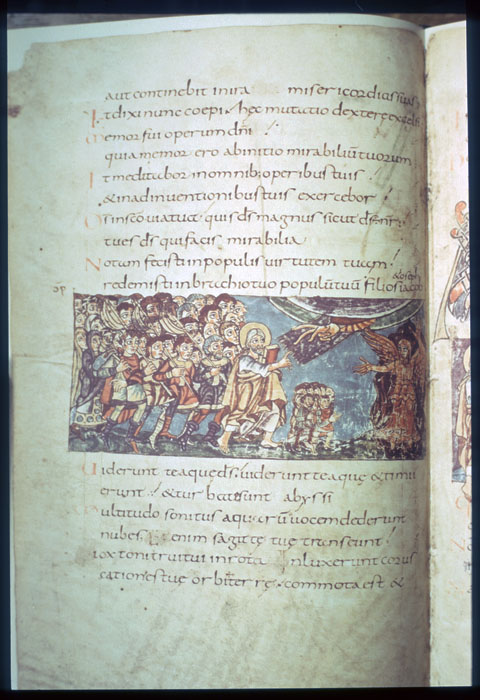 aut continebit in ira misericordias suas
Et dixi nunc coepi. hęc mutatio dexterę excelsi
Memor fui operum dn̄i
quia memor ero ab initio mirabiliū tuorum
Et meditabor in omnib; operibus tuis
& in adinventionibus tuis exercebor
Ds̄ in sc̄o via tua quis ds̄ magnus sicut ds̄ nr̄
tu es ds̄ qui facis mirabilia
Notam fecisti in populis virtutem tuam
& ioseph
redemisti in brachio tuo populū tuū filios iacob
Viderunt te aquę ds̄ viderunt te aquę & timu
erunt & turbatę sunt abyssi
Multitudo sonitus aquarū vocem dederunt
nubes. Etenim sagittę tuę transeunt
vox tonitrui tui in rota Inluxerunt corus
cationes tuę orbi terrę. commota est &